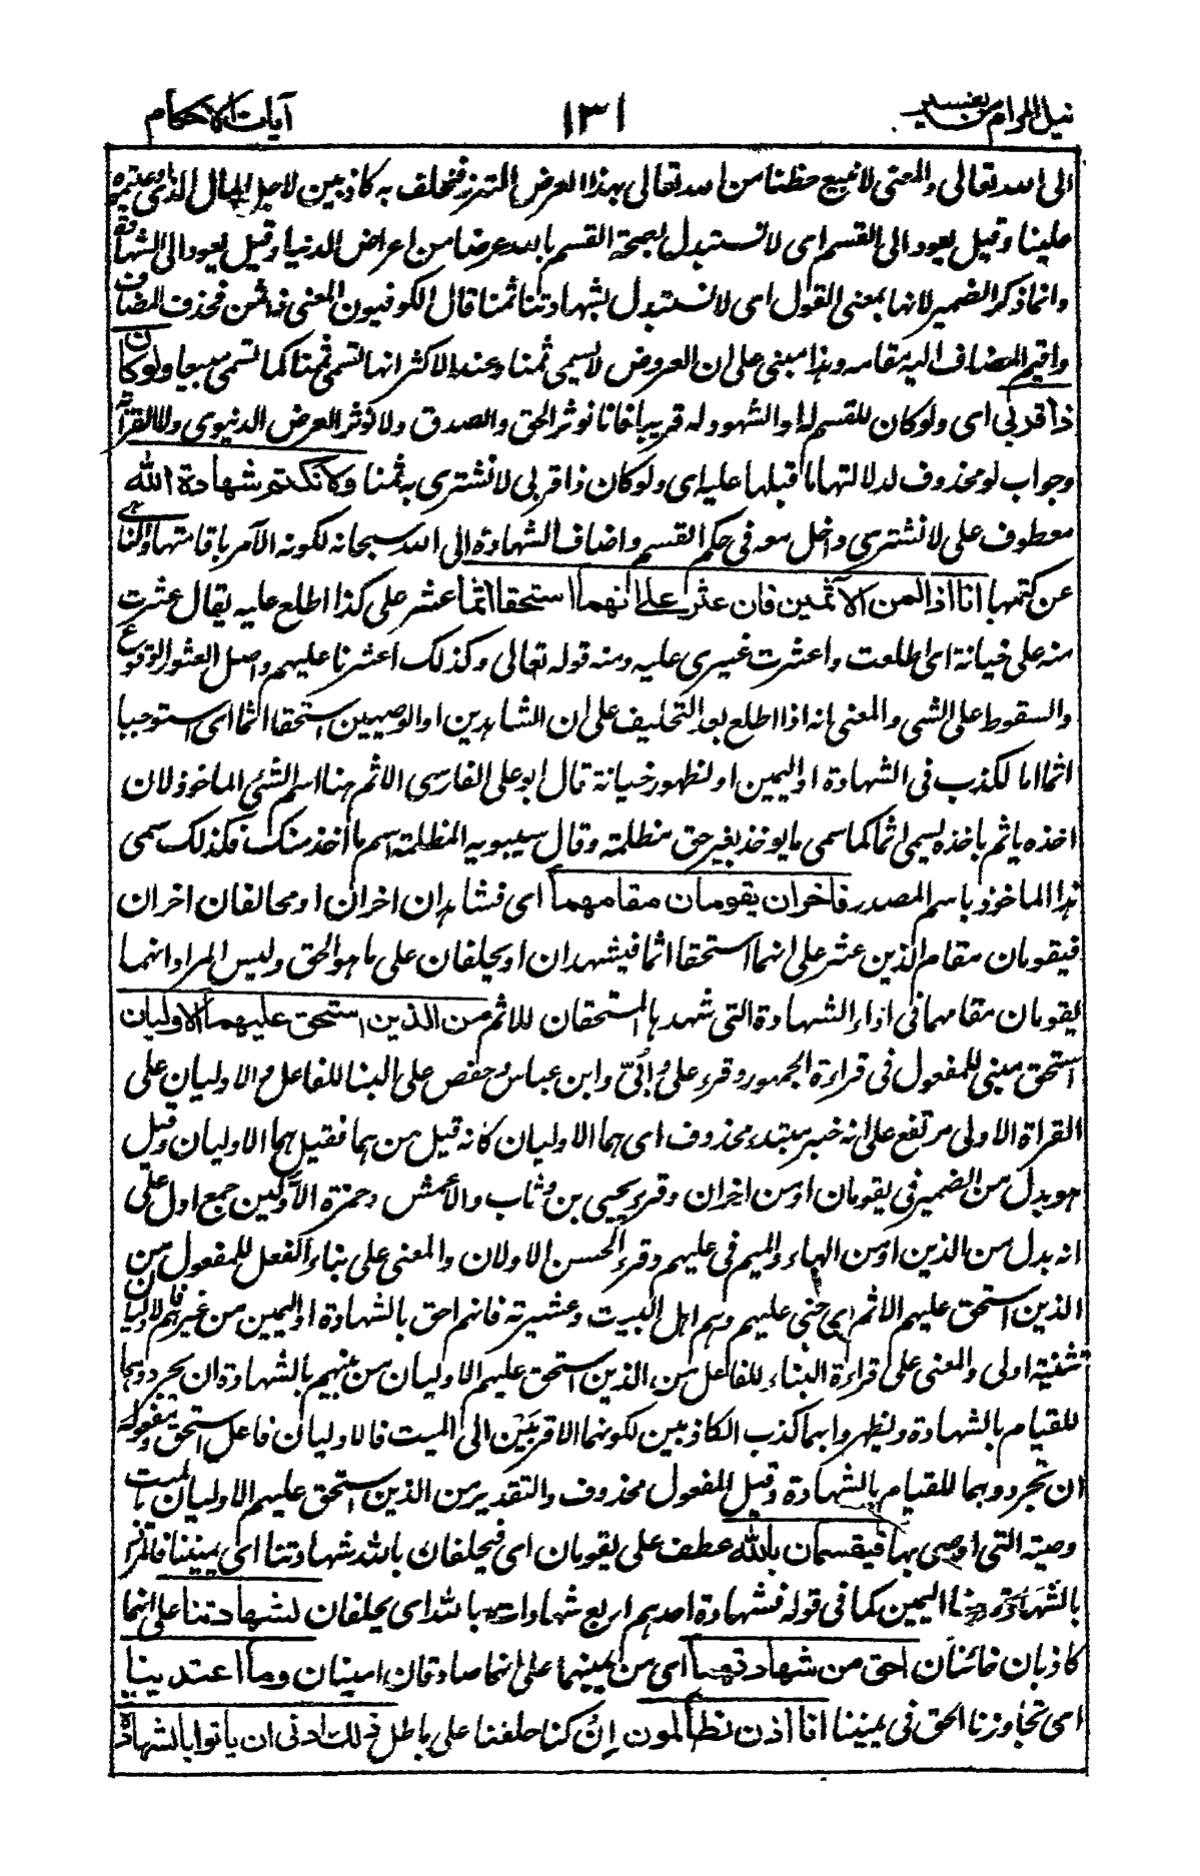 نيل المرام من تفسير ١٣١ آيات الاحكام
الى الله تعالى والمعنى لا نبيع حظنا من الله تعالى بهذا العرض النزر فنحلف به كاذبين لاجل المال الذى ادعيتموه
علينا وقيل يعود الى القسم اى لا نستبدل بصحة القسم بالله عرضا من اعراض الدنيا وقيل يعود الى الشهادة
وانما ذكر الضمير لانها بمعنى القول اى لا نستبدل بشهادتنا ثمنا قال الكوفيون المعنى ذا ثمن فحذف المضاف
واقيم المضاف اليه مقامه وهذا مبنى على ان العروض لا يسمى ثمنا وعند الاكثر انها تسمى ثمنا كما تسمى مبيعا ولو كان
ذا قربى اى ولو كان للقسم له او الشهود له قريبا فانا نؤثر الحق والصدق ولا نؤثر العرض الدنيوى ولا القرابة
وجواب لو محذوف لدلالتها ما قبلها عليه اى ولو كان ذا قربى لا نشترى به ثمنا ولا نكتم شهادة الله
معطوف على لا نشترى داخل معه فى حكم القسم واضاف الشهادة الى الله سبحانه لكونه الآمر باقامتها والناهى
عن كتمها انا اذا لمن الآثمين فان عثر على انهما استحقا اثما عثر على كذا اطلع عليه يقال عثرت
منه على خيانة اى اطلعت واعثرت غيرى عليه ومنه قوله تعالى وكذلك اعثرنا عليهم واصل العثور الوقوع
والسقوط على الشى والمعنى انه اذا اطلع بعد التحليف على ان الشاهدين او الوصيين استحقا اثما اى استوجبا
اثما اما لكذب فى الشهادة او اليمين او لظهور خيانة قال ابو على الفارسى الاثم هنا اسم الشئ الماخوذ لان
اخذه ياثم باخذه يسمى اثما كما سمى ما يوخذ بغير حق مظلمة وقال سيبويه المظلمة اسم ما اخذ منك فكذلك سمى
هذا الماخوذ باسم المصدر فاخران يقومان مقامهما اى فشاهدان اخران او محالفان اخران
فيقومان مقام الذين عثر على انهما استحقا اثما فيشهدان او يحلفان على ما هو الحق وليس المراد انهما
يقومان مقامهما فى اداء الشهادة التى شهد بها المستحقان للاثم من الذين استحق عليهما الاوليان
استحق مبنى للمفعول فى قراءة الجمهور وقرء على وأبىّ وابن عباس وحفص على البنا للفاعل والاوليان على
القراة الاولى مرتفع على انه خبر مبتدء محذوف اى هما الاوليان كانه قيل من هما فقيل هما الاوليان وقيل
هو بدل من الضمير فى يقومان او من اخران وقرء يحيى بن وثاب والاعمش وحمزة الأوّلين جمع اول على
انه بدل من الذين او من الهاء والميم فى عليهم وقرء الحسن الاولان والمعنى على بناء الفعل للمفعول من
الذين استحق عليهم الاثم اى جنى عليهم وهم اهل البيت وعشيرته فانهم احق بالشهادة او اليمين من غيرهم فالاوليان
تثنية اولى والمعنى على قراءة البناء للفاعل من الذين استحق عليهم الاوليان من بينهم بالشهادة ان يجردوهما
للقيام بالشهادة ويظهروا بهما كذب الكاذبين لكونهما الاقربين الى الميت فالاوليان فاعل استحق ومفعوله
ان تجردوهما للقيام بالشهادة وقيل المفعول محذوف والتقدير من الذين استحق عليهم الاوليان بالميت
وصيته التى اوصى بها فيقسمان بالله عطف على يقومان اى فيحلفان بالله شهادتنا اى يميننا فالمراد
بالشهادة هنا اليمين كما فى قوله فشهادة احدهم اربع شهادات بالله اى يحلفان لشهادتنا على انهما
كاذبان خائنان احق من شهادتهما اى من يمينهما على انهما صادقان امينان وما اعتدينا
اى تجاوزنا الحق فى يميننا انا اذن لظالمون ان كنا حلفنا على باطل ذلك ادنى ان ياتوا بالشهادة